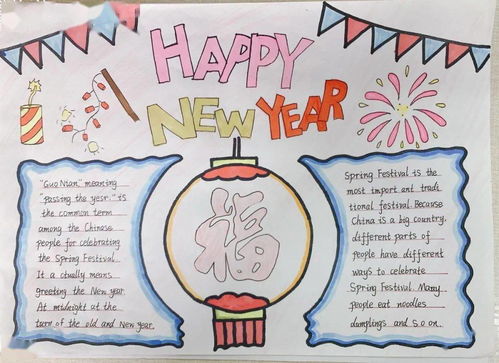 HAPPY
NEW YEAR
"Guo Nian," meaning
"passing the year," is
the common term
among the Chinese
people for celebrating
the Spring Festival.
It a ctually means
greeting the New year
At midnight at the
turn of the old and New year.
福
Spring Festival is the
most import ant tradi
tional festival. Because
China is a big country.
different parts of
people have different
ways to celebrate
Spring Festival. Many
people eat noodles
dumplings and so on.